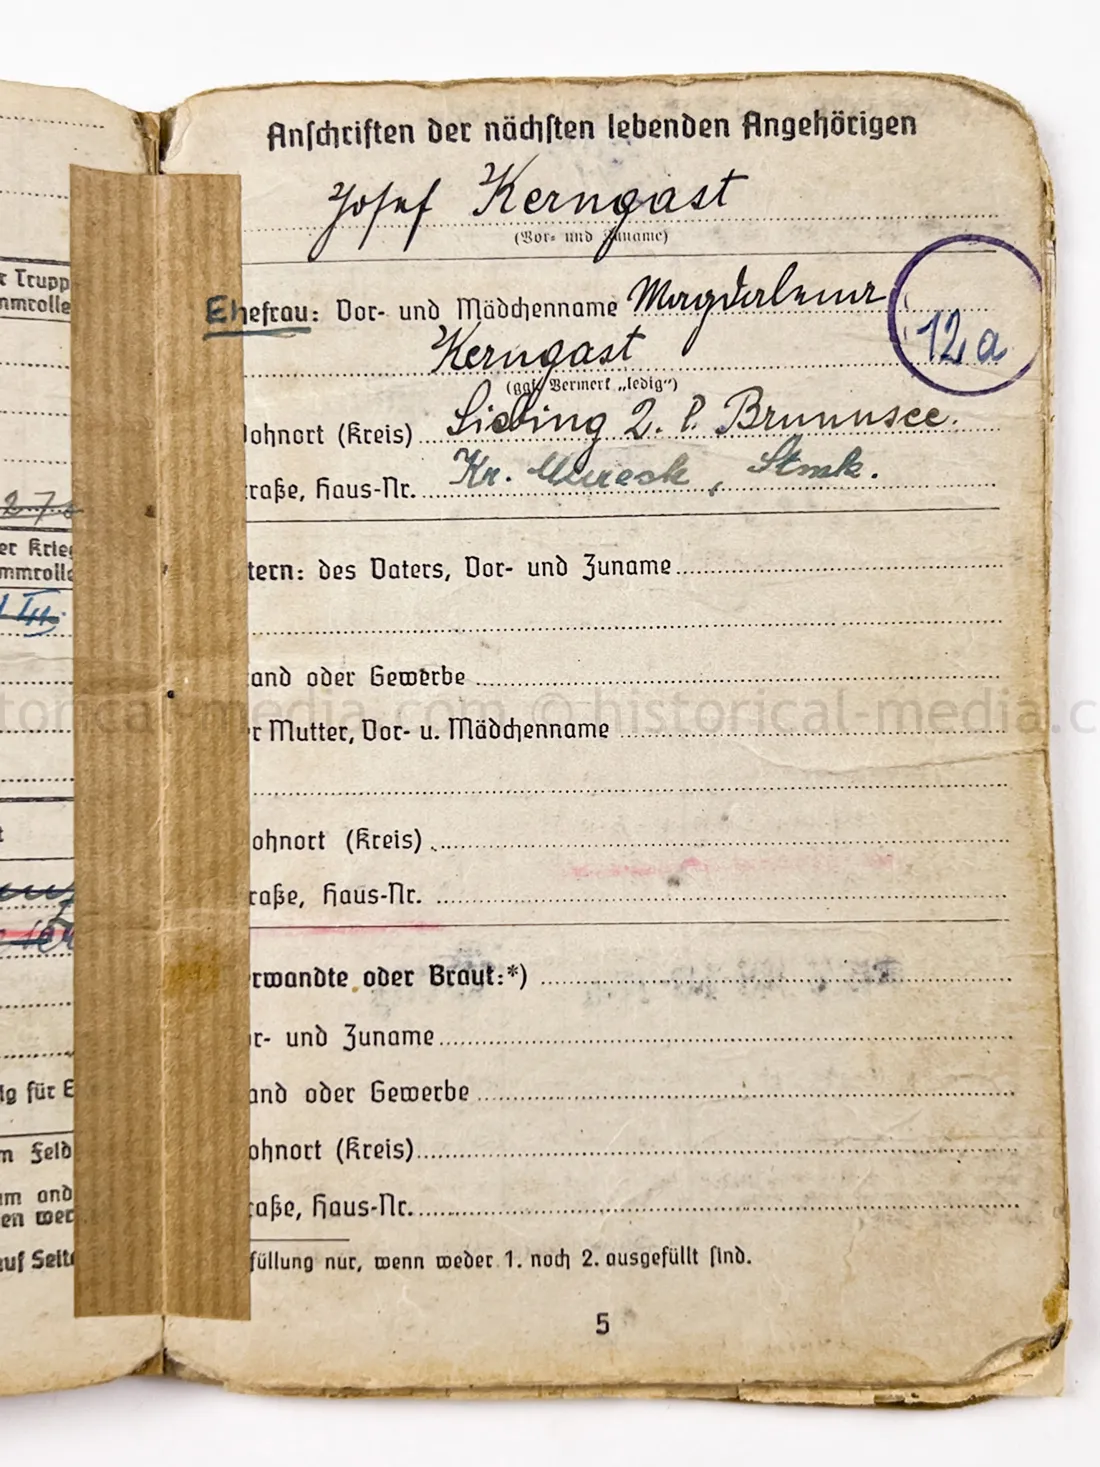 Anschriften der nächsten lebenden Angehörigen
Josef Kerngast
(Vor- und Zuname)
Ehefrau: Vor- und Mädchenname Magdalena
Kerngast
12a
(ggf. Vermerk „ledig“)
ohnort (Kreis) Siebing 2. P. Brunnsee.
raße, Haus-Nr. Kr. Mureck, Stmk.
tern: des Vaters, Vor- und Zuname
and oder Gewerbe
r Mutter, Vor- u. Mädchenname
ohnort (Kreis)
raße, Haus-Nr.
rwandte oder Braut:*)
r- und Zuname
and oder Gewerbe
ohnort (Kreis)
aße, Haus-Nr.
füllung nur, wenn weder 1. noch 2. ausgefüllt sind.
5
r Trupp
mmrolle
er Krie
mmrolle
lg für E
m Feld
em and
en wer
uf Seite
torical-media.com © historical-media.c